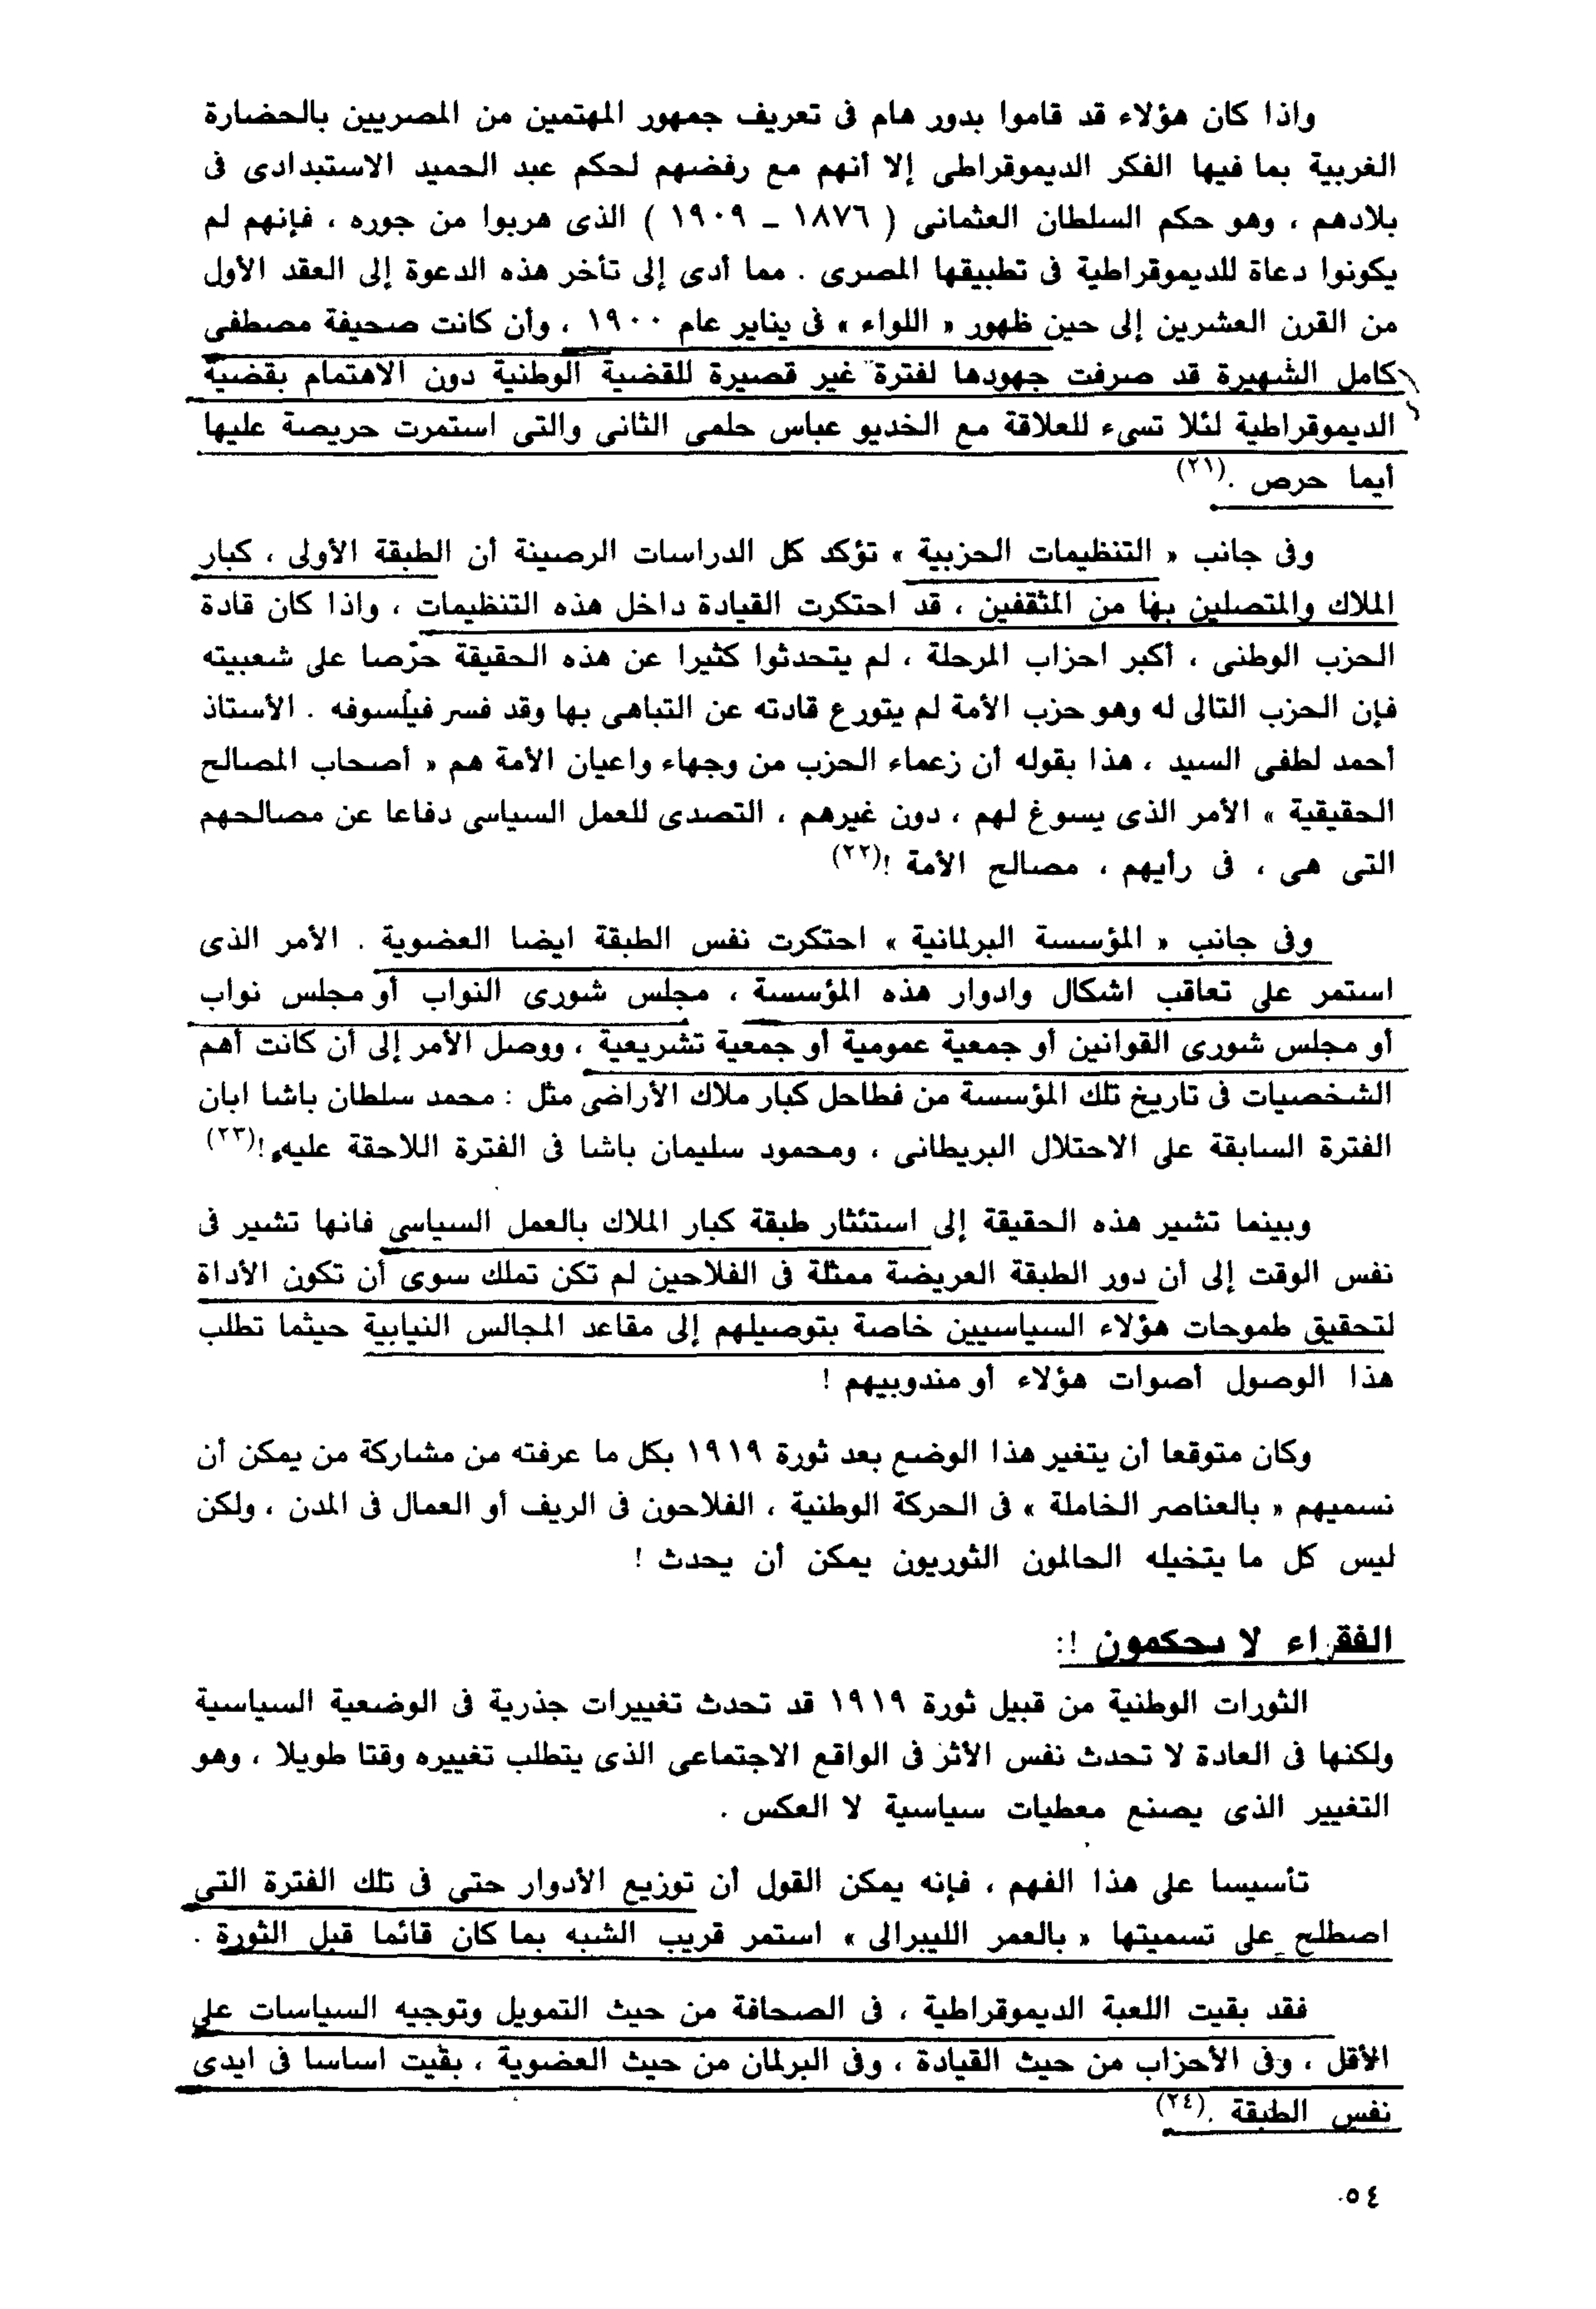 واذا كان هؤلاء قد قاموا بدور هام فى تعريف جمهور المهتمين من المصريين بالحضارة
الغربية بما فيها الفكر الديموقراطى إلا أنهم مع رفضهم لحكم عبد الحميد الاستبدادى فى
بلادهم ، وهو حكم السلطان العثمانى ( ١٨٧٦ ــ ١٩٠٩ ) الذى هربوا من جوره ، فإنهم لم
يكونوا دعاة للديموقراطية فى تطبيقها المصرى . مما أدى إلى تأخر هذه الدعوة إلى العقد الأول
من القرن العشرين إلى حين ظهور « اللواء » فى يناير عام ١٩٠٠ ، وأن كانت صحيفة مصطفى
كامل الشهيرة قد صرفت جهودها لفترة غير قصيرة للقضية الوطنية دون الاهتمام بقضية
الديموقراطية لئلا تسىء للعلاقة مع الخديو عباس حلمى الثانى والتى استمرت حريصة عليها
أيما حرص .(٢١)
وفى جانب « التنظيمات الحزبية » تؤكد كل الدراسات الرصينة أن الطبقة الأولى ، كبار
الملاك والمتصلين بها من المثقفين ، قد احتكرت القيادة داخل هذه التنظيمات ، واذا كان قادة
الحزب الوطنى ، أكبر احزاب المرحلة ، لم يتحدثوا كثيرا عن هذه الحقيقة حرصا على شعبيته
فإن الحزب التالى له وهو حزب الأمة لم يتورع قادته عن التباهى بها وقد فسر فيلسوفه . الأستاذ
أحمد لطفى السيد ، هذا بقوله أن زعماء الحزب من وجهاء واعيان الأمة هم « أصحاب المصالح
الحقيقية » الأمر الذى يسوغ لهم ، دون غيرهم ، التصدى للعمل السياسى دفاعا عن مصالحهم
التى هى ، فى رأيهم ، مصالح الأمة !(٢٢)
وفى جانب « المؤسسة البرلمانية » احتكرت نفس الطبقة ايضا العضوية . الأمر الذى
استمر على تعاقب اشكال وادوار هذه المؤسسة ، مجلس شورى النواب أو مجلس نواب
أو مجلس شورى القوانين أو جمعية عمومية أو جمعية تشريعية ، ووصل الأمر إلى أن كانت أهم
الشخصيات فى تاريخ تلك المؤسسة من فطاحل كبار ملاك الأراضى مثل : محمد سلطان باشا ابان
الفترة السابقة على الاحتلال البريطانى ، ومحمود سليمان باشا فى الفترة اللاحقة عليه !(٢٣)
وبينما تشير هذه الحقيقة إلى استئثار طبقة كبار الملاك بالعمل السياسى فانها تشير فى
نفس الوقت إلى أن دور الطبقة العريضة ممثلة فى الفلاحين لم تكن تملك سوى أن تكون الأداة
لتحقيق طموحات هؤلاء السياسيين خاصة بتوصيلهم إلى مقاعد المجالس النيابية حيثما تطلب
هذا الوصول أصوات هؤلاء أو مندوبيهم !
وكان متوقعا أن يتغير هذا الوضع بعد ثورة ١٩١٩ بكل ما عرفته من مشاركة من يمكن أن
نسميهم « بالعناصر الخاملة » فى الحركة الوطنية ، الفلاحون فى الريف أو العمال فى المدن ، ولكن
ليس كل ما يتخيله الحالمون الثوريون يمكن أن يحدث !
الفقراء لا يحكمون !:
الثورات الوطنية من قبيل ثورة ١٩١٩ قد تحدث تغييرات جذرية فى الوضعية السياسية
ولكنها فى العادة لا تحدث نفس الأثر فى الواقع الاجتماعى الذى يتطلب تغييره وقتا طويلا ، وهو
التغيير الذى يصنع معطيات سياسية لا العكس .
تأسيسا على هذا الفهم ، فإنه يمكن القول أن توزيع الأدوار حتى فى تلك الفترة التى
اصطلح على تسميتها « بالعمر الليبرالى » استمر قريب الشبه بما كان قائما قبل الثورة .
فقد بقيت اللعبة الديموقراطية ، فى الصحافة من حيث التمويل وتوجيه السياسات على
الأقل ، وفى الأحزاب من حيث القيادة ، وفى البرلمان من حيث العضوية ، بقيت اساسا فى ايدى
نفس الطبقة .(٢٤)
٥٤